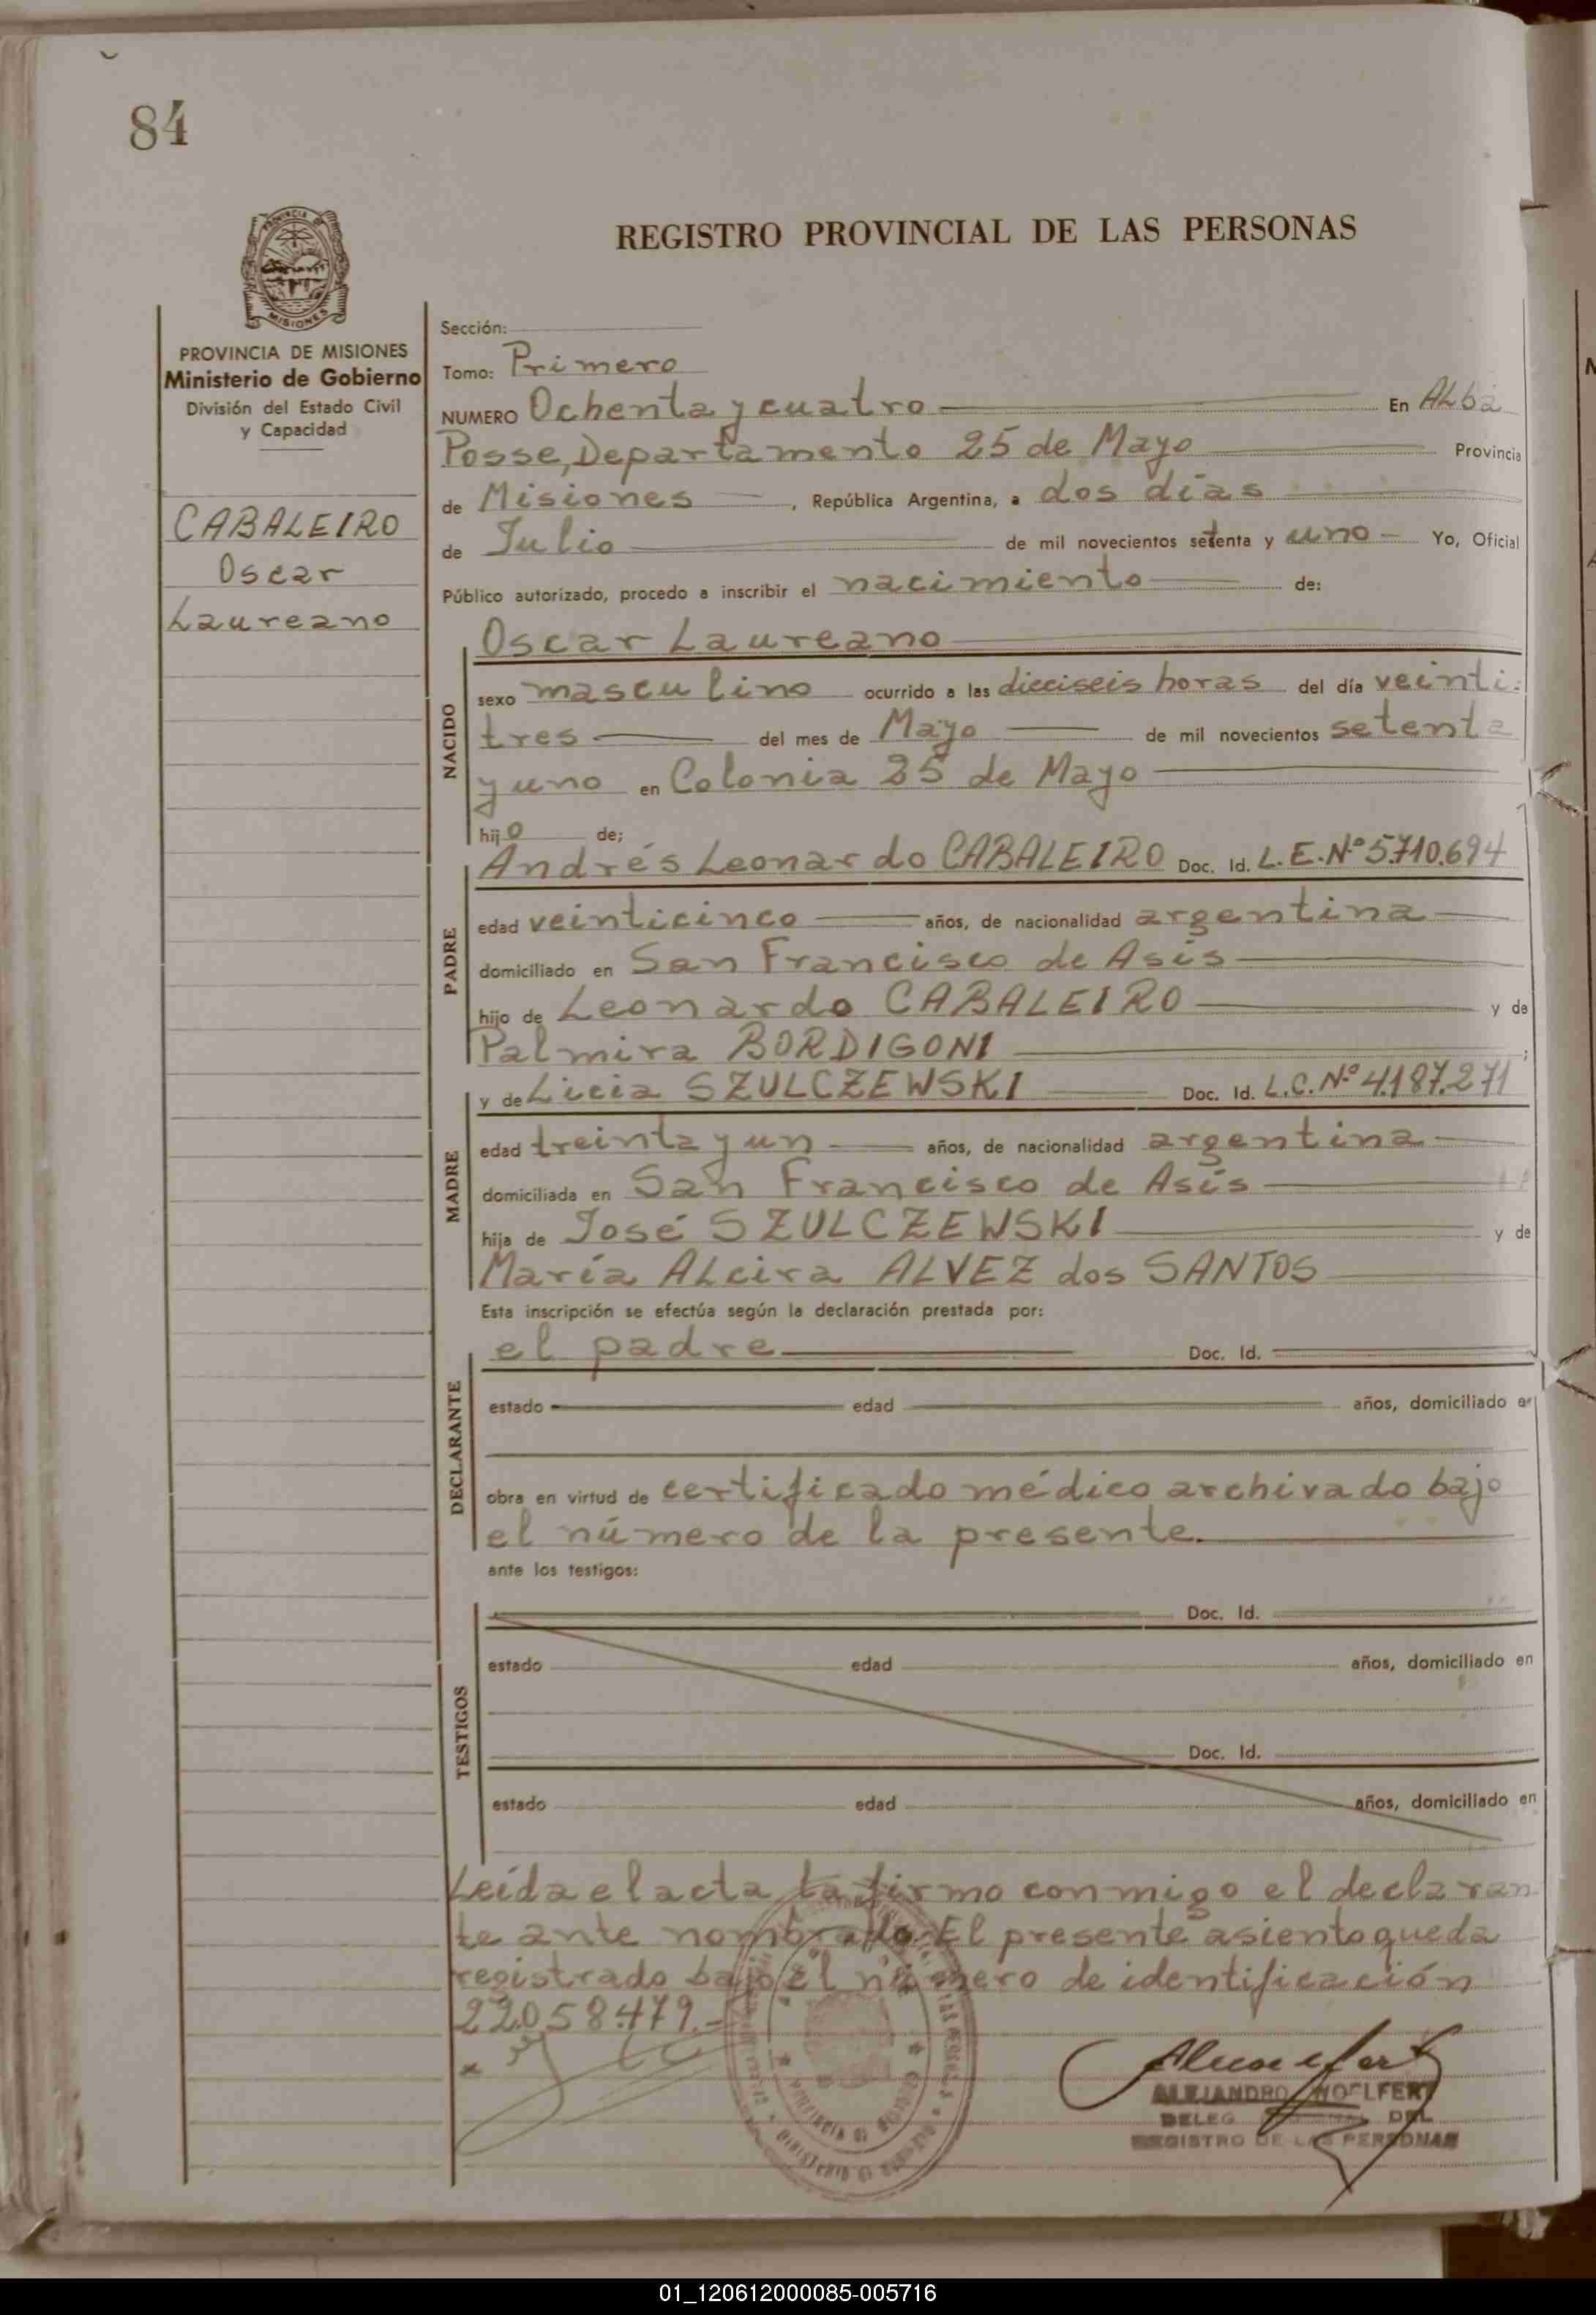 84
PROVINCIA DE
MISIONES
REGISTRO PROVINCIAL DE LAS PERSONAS
PROVINCIA DE MISIONES
Ministerio de Gobierno
División del Estado Civil
y Capacidad
CABALEIRO
Oscar
Laureano
Sección:
Tomo: Primero
NUMERO Ochenta y cuatro En Alba
Posse, Departamento 25 de Mayo Provincia
de Misiones, República Argentina, a dos días
de Julio de mil novecientos setenta y uno Yo, Oficial
Público autorizado, procedo a inscribir el nacimiento de:
NACIDO
Oscar Laureano
sexo masculino ocurrido a las dieciseis horas del día veinti-
tres del mes de Mayo de mil novecientos setenta
y uno en Colonia 25 de Mayo
hijo de;
PADRE
Andrés Leonardo CABALEIRO Doc. Id. L.E. Nº 5.710.694
edad veinticinco años, de nacionalidad argentina
domiciliado en San Francisco de Asís
hijo de Leonardo CABALEIRO y de
Palmira BORDIGONI;
MADRE
y de Licia SZULCZEWSKI Doc. Id. L.C. Nº 4.187.271
edad treinta y un años, de nacionalidad argentina
domiciliada en San Francisco de Asís
hija de José SZULCZEWSKI y de
María Alcira ALVEZ dos SANTOS
Esta inscripción se efectúa según la declaración prestada por:
DECLARANTE
el padre Doc. Id.
estado edad años, domiciliado en
obra en virtud de certificado médico archivado bajo
el número de la presente.
ante los testigos:
TESTIGOS
Doc. Id.
estado edad años, domiciliado en
Doc. Id.
estado edad años, domiciliado en
Leída el acta la firmo conmigo el declaran
te ante nombrado. El presente asiento queda
registrado bajo el número de identificación
22.058.479.-
ALEJANDRO WOELFERT
DEL
REGISTRO DE LAS PERSONAS
01_120612000085-005716